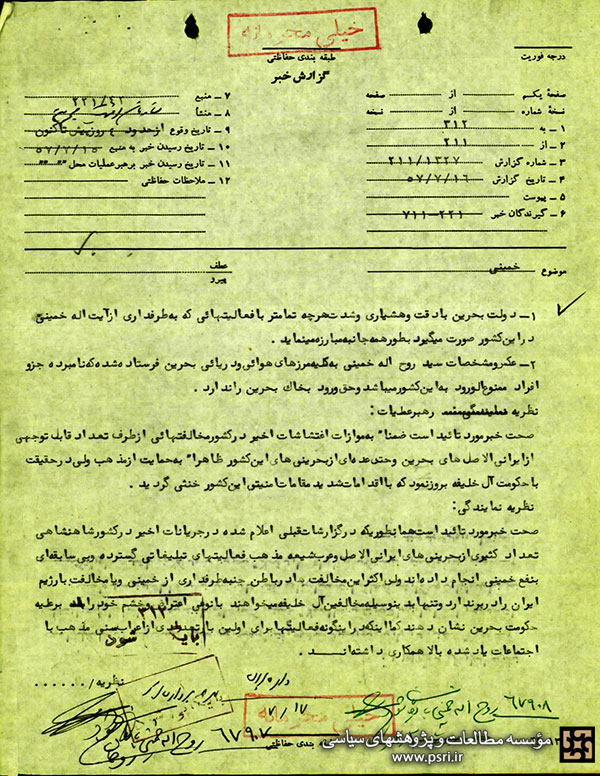 خیلی محرمانه
طبقه بندی حفاظتی
درجه فوریت
گزارش خبر
صفحه یکم از صفحه
نسخه شماره از نسخه
۱ ــ به ۳۱۲
۲ ــ از ۲۱۱
۳ ــ شماره گزارش ۲۱۱/۱۳۲۷
۴ ــ تاریخ گزارش ۵۷/۷/۱۶
۵ ــ پیوست
۶ ــ گیرندگان خبر ۲۲۱–۷۱۱
۷ ــ منبع
۸ ــ منشأ
۹ ــ تاریخ وقوع ازحدود ۴ روزپیش تاکنون
۱۰ ــ تاریخ رسیدن خبر به منبع ۵۷/۷/۱۵
۱۱ ــ تاریخ رسیدن خبر برهبر عملیات محل " " "
۱۲ ــ ملاحظات حفاظتی
موضوع خمینی
عطف
پیرو
۱ــ دولت بحرین بادقت وهشیاری وشدت هرچه تمامتر بافعالیتهائی که به طرفداری ازآیت اله خمینی
دراین کشور صورت میگیرد بطور همه جانبه مبارزه مینماید .
۲ــ عکس ومشخصات سید روح اله خمینی به کلیه مرزهای هوائی ودریائی بحرین فرستاده شده که نامبرده جزو
افراد ممنوع الورود به این کشور میباشد وحق ورود بخاک بحرین راندارد .
نظریه رهبرعملیات :
صحت خبر مورد تائید است ضمنا" به موازات اغتشاشات اخیر درکشور مخالفتهائی ازطرف تعداد قابل توجهی
ازایرانی الاصل های بحرین وحتی عده ای ازبحرینی های این کشور ظاهرا" به حمایت ازمذهب ولی درحقیقت
باحکومت آل خلیفه بروز نمود که بااقدامات شدید مقامات امنیتی این کشور خنثی گردید .
نظریه نمایندگی :
صحت خبر مورد تائید است همانطوریکه درگزارشات قبلی اعلام شده درجریانات اخیر درکشور شاهنشاهی
تعداد کثیری ازبحرینی های ایرانی الاصل وعرب شیعه مذهب فعالیتهای تبلیغاتی گسترده وبی سابقه ای
بنفع خمینی انجام داده اند ولی اکثر این مخالفت ها درباطن جنبه طرفداری از خمینی ویا مخالفت بارژیم
ایران را دربرندارد وتنها بدینوسیله مخالفین آل خلیفه میخواهند بانوعی اعتراض وخشم خودرا برعلیه
حکومت بحرین نشان دهند کمااینکه دراینگونه فعالیتها برای اولین بار تعدادی ازاعراب سنی مذهب با
اجتماعات یادشده بالا همکاری داشته‌اند .
۳۱۲
باید شود
نظریه / . . . . . .
۷/۱۷
۶۷۹۰۸
۶۷۹۰۷ روح اله خمینی
خیلی محرمانه
طبقه بندی حفاظتی
مؤسسه مطالعات و پژوهشهای سیاسی
www.psri.ir